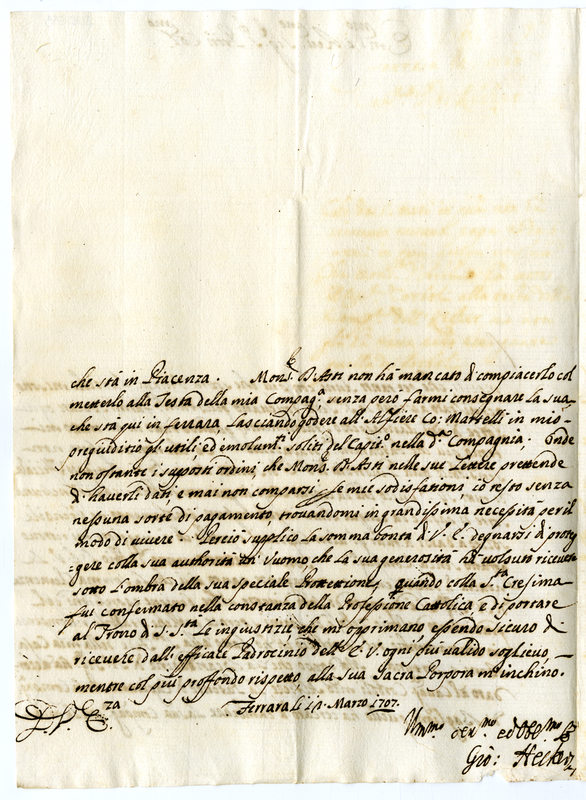 che stà in Piacenza. Mons.r D'Asti non hà mancato di compiacerlo col
metterlo alla Testa della mia Compag.a senza però farmi consegnare la sua
che stà quì in Ferrara, lasciando godere all'Alfiere Co: Martelli in mio
pregiuditio gl'utili, ed emolum.ti soliti del Capit.o nella d.a Compagnia; Onde
non ostante i supposti ordini, che Mons.r D'Asti nelle sue Lettere prettende
d'haverli dati, e mai non comparsi, le mie sodisfationi, io resto senza
nessuna sorte di pagamento, trovandomi in grandissima necessità per il
modo di vivere. Perciò supplico la somma bontà di V. E. degnarsi di proteg
=gere colla sua authorità un'Uomo, che la sua generosità hà volsuto ricevere
sotto l'ombra della sua speciale Prottetione, quando colla S.ta Cresima
fui confermato nella constanza della Professione Cattolica, e di portare
al Trono di S. S.tà le ingiustizie, che mi opprimano, essendo sicuro di
ricevere dall'efficace Padrocinio dell'E. V. ogni più valido soglievo,
mentre col più proffondo rispetto alla sua Sacra Porpora m'inchino.
Ferrara li Marzo 1707.
D. V. E.za
Um.mo Dev.mo ed Obb.mo
Giò: